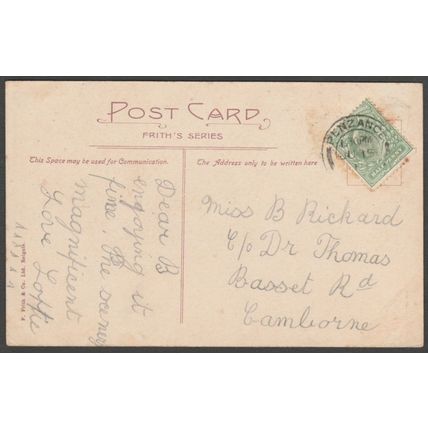 POST CARD
FRITH'S SERIES
This Space may be used for Communication.
The Address only to be written here
PENZANCE
Dear B
enjoying it
fine. The scenery
magnificent
Love Lottie
Miss B Rickard
C/o Dr Thomas
Basset Rd
Camborne
F. Frith & Co. Ltd. Reigate.